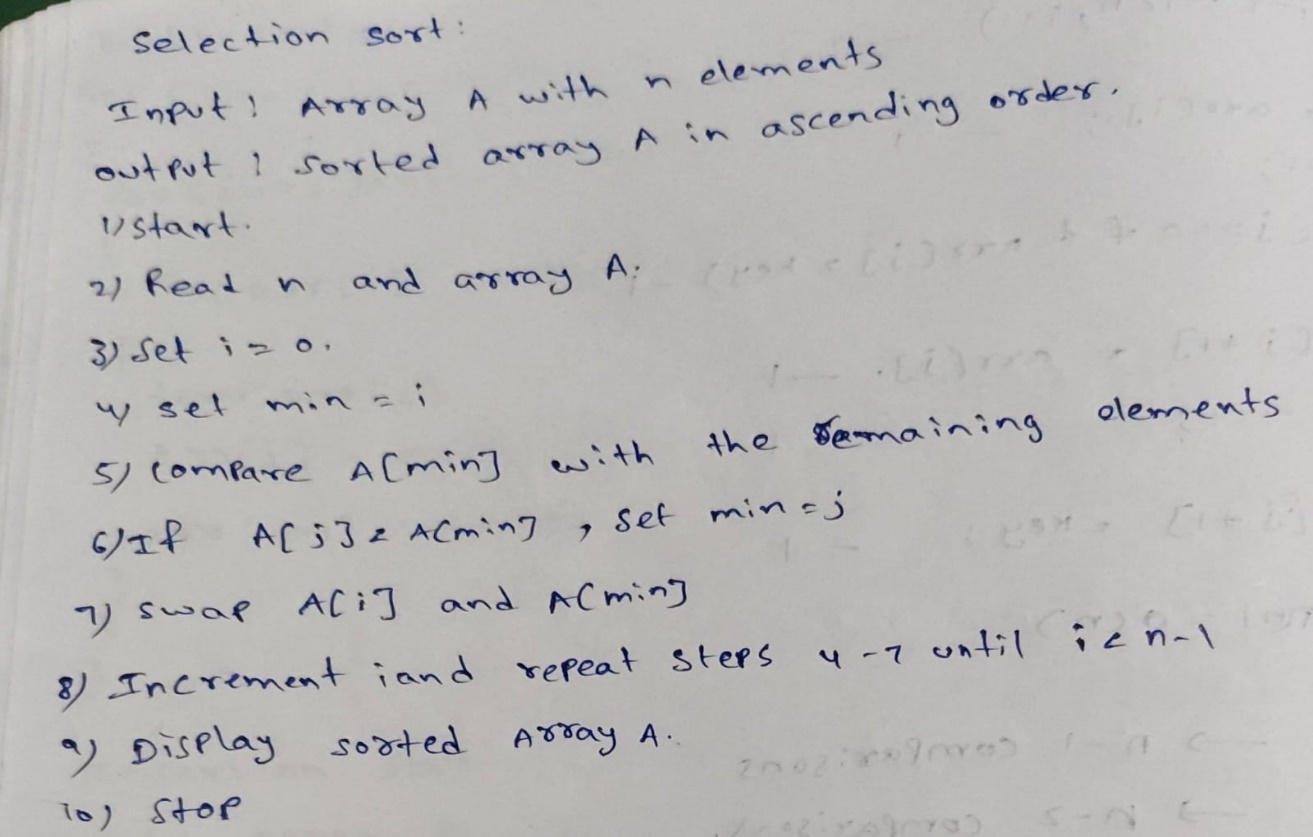 Selection sort:
Input: Array A with n elements
output: sorted array A in ascending order.
1) start.
2) Read n and array A.
3) Set i = 0.
4) set min = i
5) compare A[min] with the remaining elements
6) If A[j] < A[min], set min = j
7) swap A[i] and A[min]
8) Increment i and repeat steps 4-7 until i < n-1
9) Display sorted Array A.
10) Stop